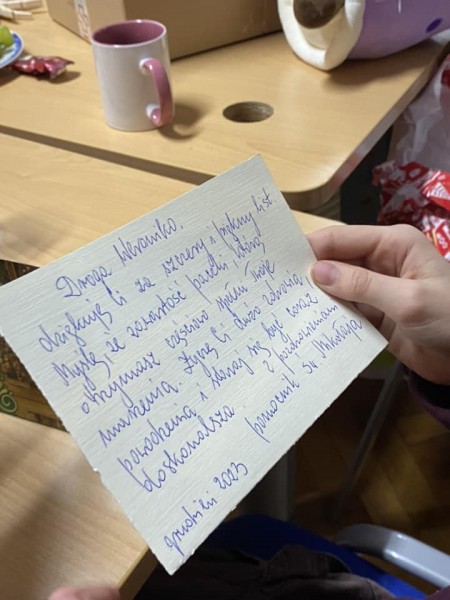 Droga Weroniko,
dziękuję Ci za szczery i piękny list
Myślę, że zawartość paczki, którą
otrzymasz częściowo spełni Twoje
marzenia. Życzę Ci dużo zdrowia,
powodzenia i staraj się być coraz
doskonalsza. Z pozdrowieniami
pomocnik św Mikołaja
grudzień 2023